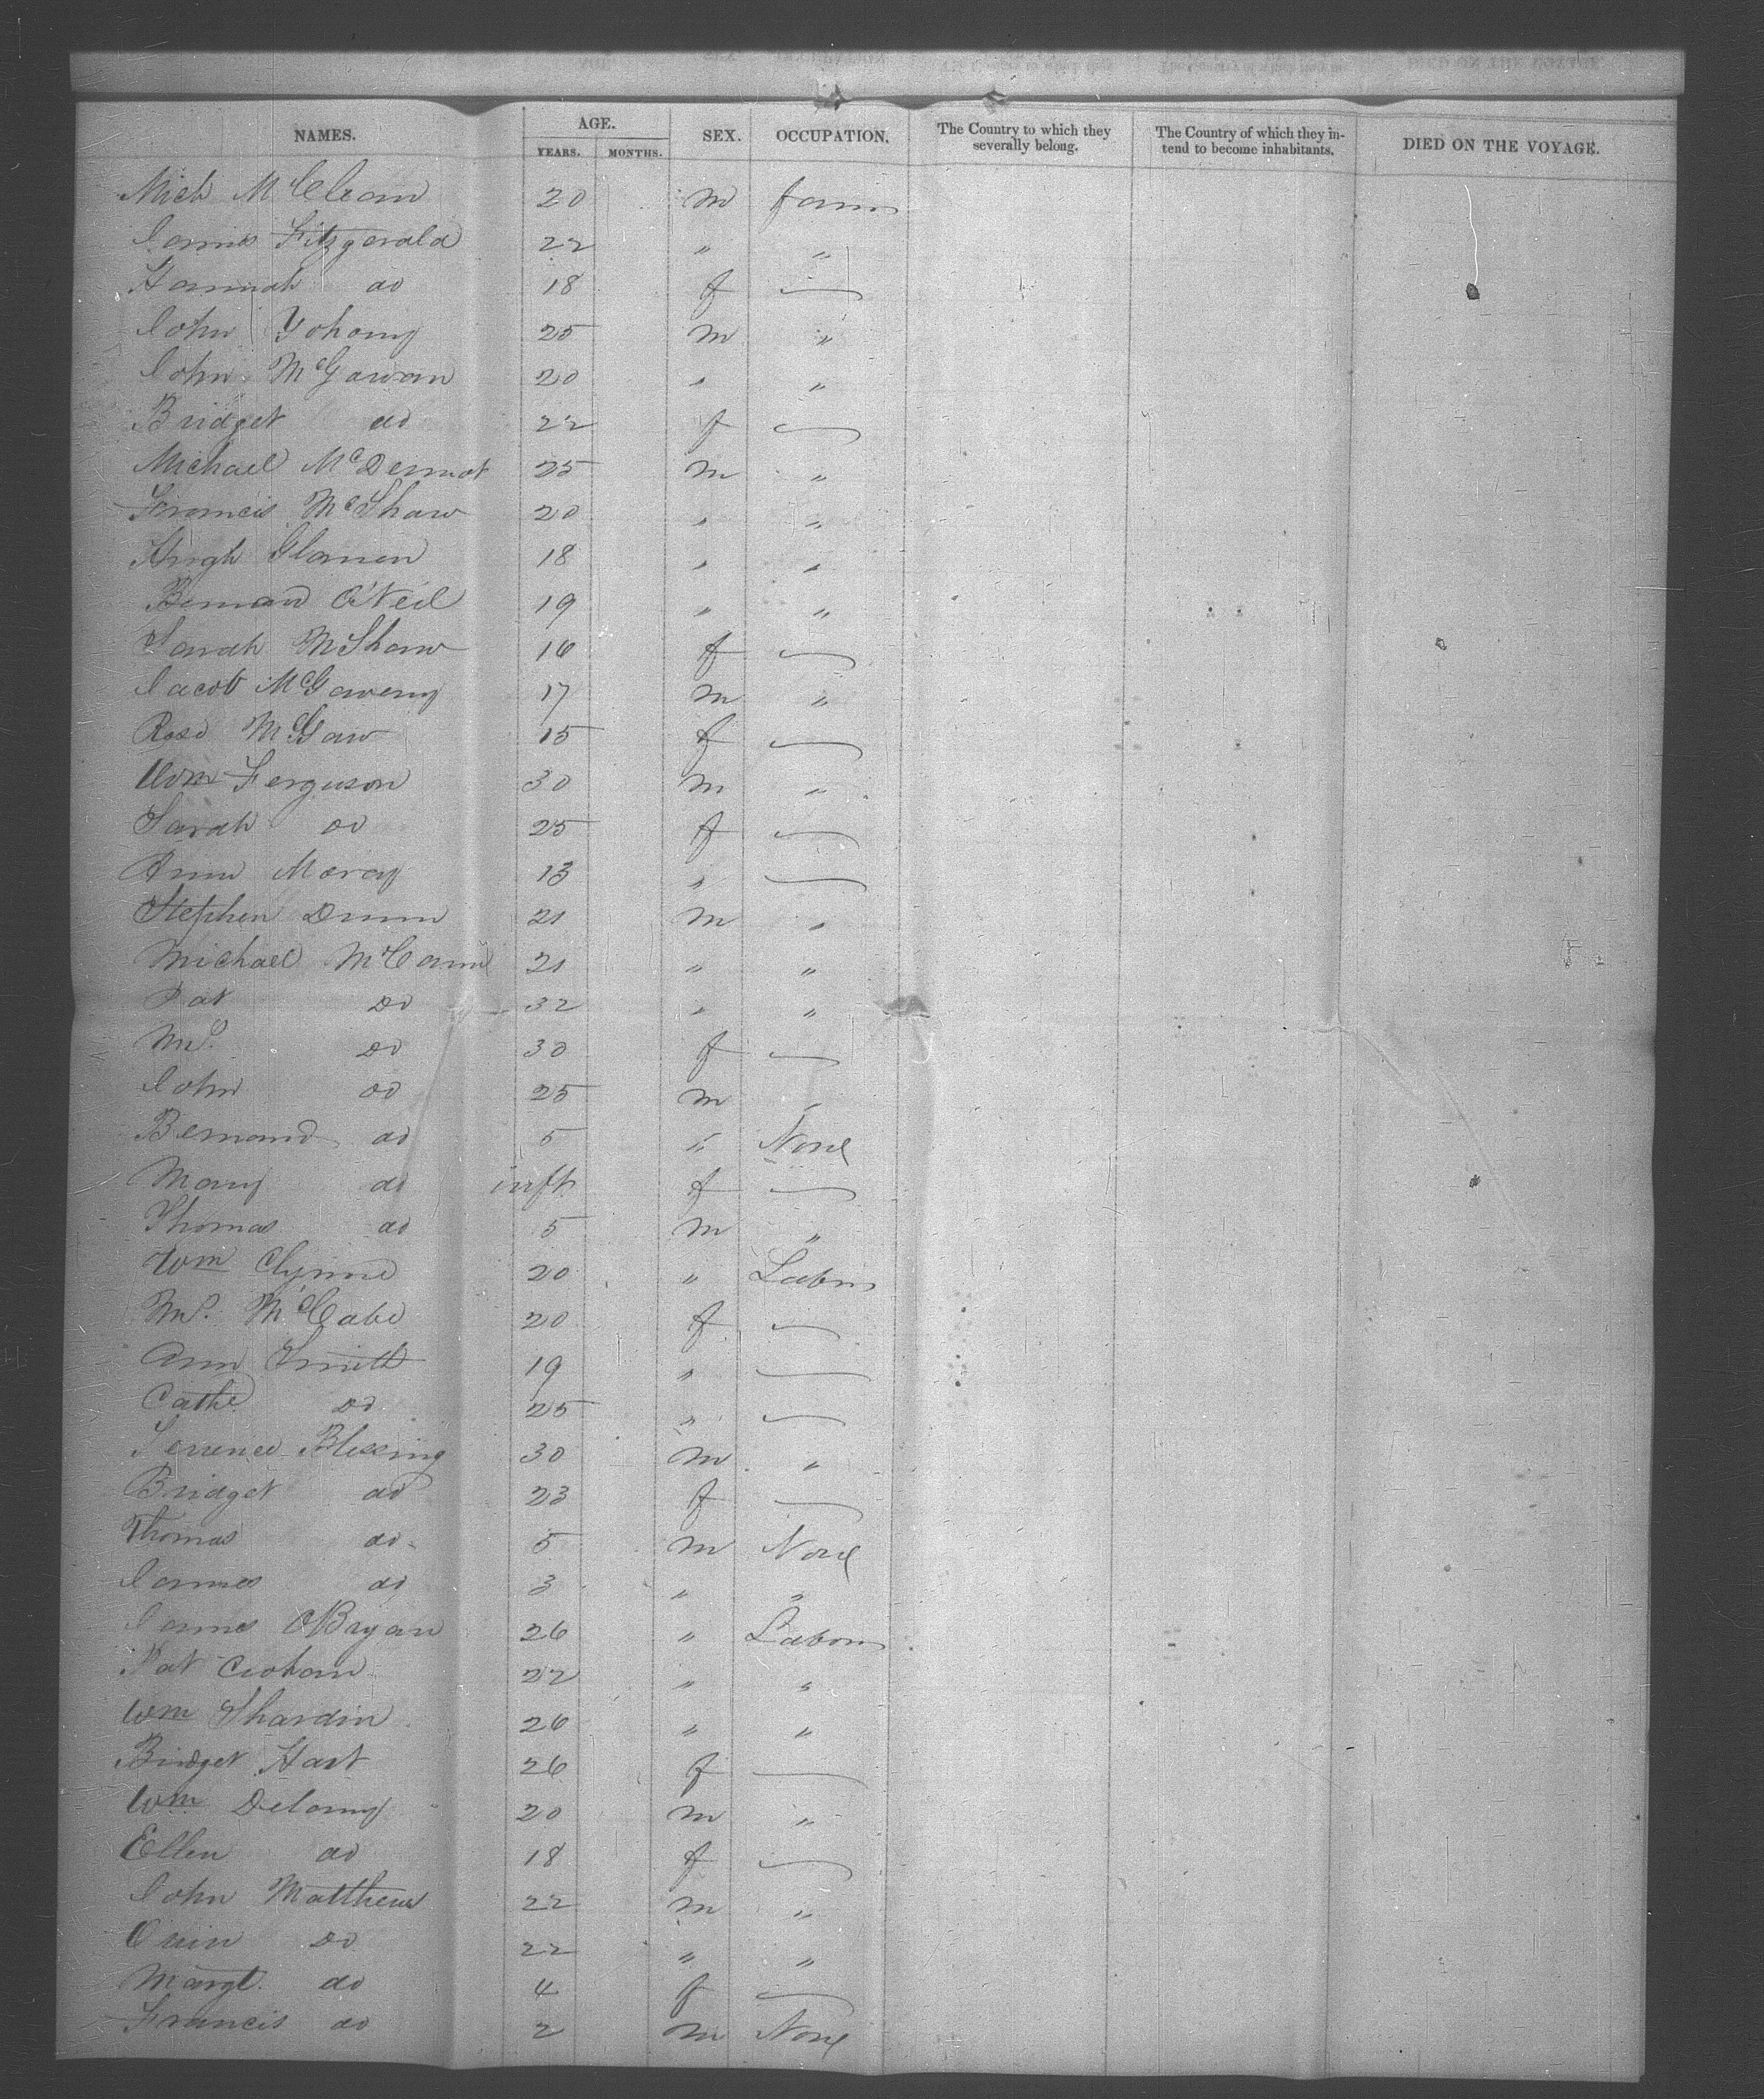 NAMES. AGE. YEARS. MONTHS. SEX. OCCUPATION. The Country to which they severally belong. The Country of which they intend to become inhabitants. DIED ON THE VOYAGE.
Mich McClean 20 m farmr
James Fitzgerald 22 " "
Hannah do 18 f —
John Yohany 25 m "
John McGowan 20 " "
Bridget do 22 f —
Michael McDermot 25 m "
Francis McShaw 20 " "
Hugh Glamen 18 " "
Bernard O'Neil 19 " "
Sarah McShaw 16 f —
Jacob McGaweny 17 m "
Rose McGaw 15 f —
Wm Ferguson 30 m "
Sarah do 25 f —
Ann Moray 13 " —
Stephen Dunn 21 m "
Michael McCann 21 " "
Pat Do 32 " "
Mrs. Do 30 f —
John do 25 m "
Bernard do 5 " None
Mary do inft f —
Thomas do 5 m "
Wm Clynne 20 " Labr
Mrs. McCabe 20 f —
Ann Smith 19 " —
Cathe Do 25 " —
Terrence Blessing 30 m "
Bridget do 23 f —
Thomas do 5 m None
James do 3 " "
James OBryan 26 " Labor
Pat Crohan 22 " "
Wm Shardin 26 " "
Bridget Hart 26 f —
Wm Delany 20 m "
Ellen do 18 f —
John Matthews 22 m "
Owin Do 22 " "
Margt. do 4 f —
Francis do 2 m None